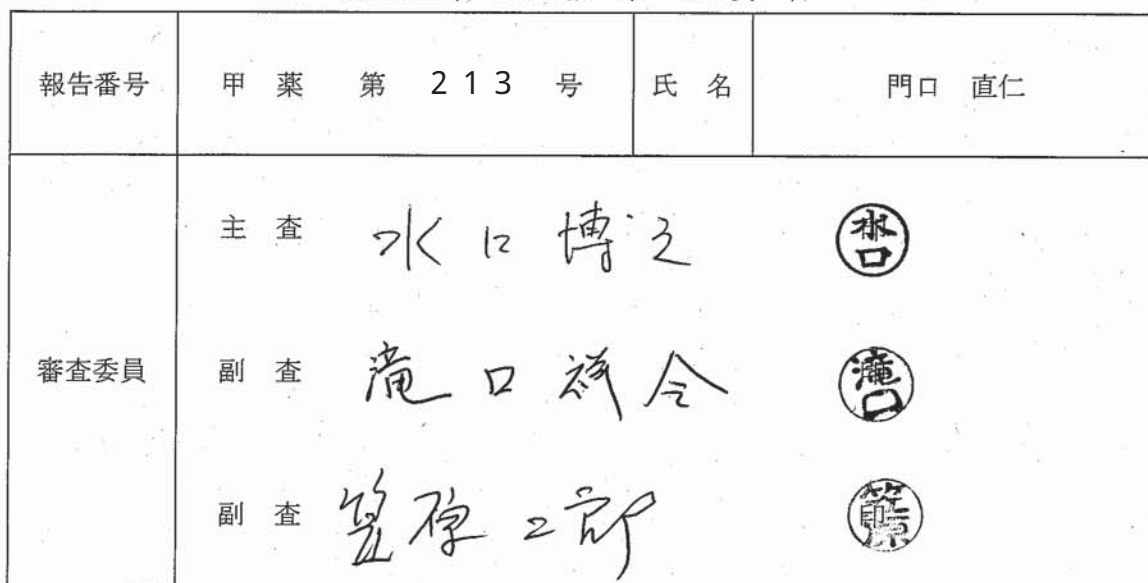 報告番号 甲 薬 第 213 号 氏 名 門口 直仁
審査委員
主 査 水口博之 水口
副 査 滝口祥令 滝口
副 査 笠原二郎 笠原印